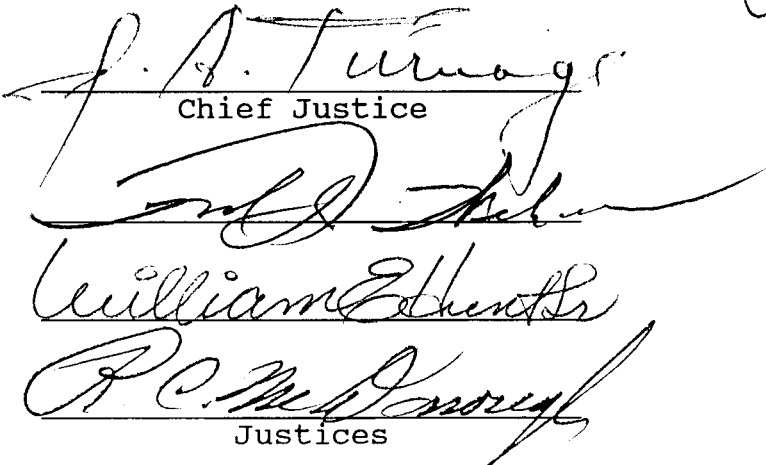 J. A. Turnage
Chief Justice
William E. Hunt Sr
R. C. McDonough
Justices